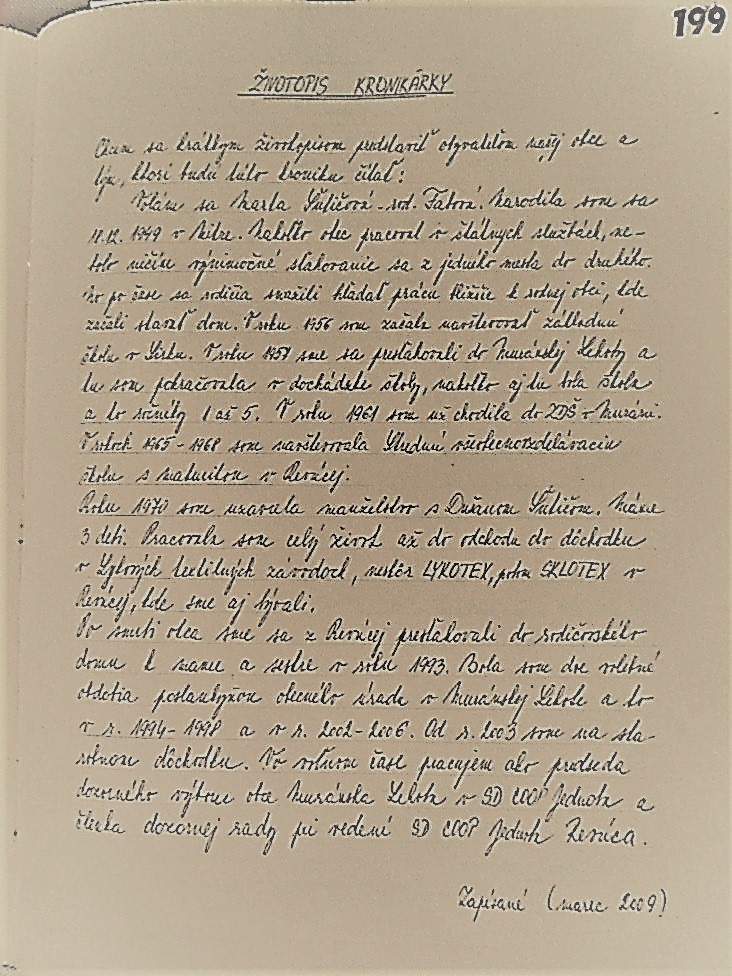 199
ŽIVOTOPIS KRONIKÁRKY
Chcem sa krátkym životopisom predstaviť obyvateľom našej obce a
tým, ktorí budú túto kroniku čítať:
Volám sa Marta rod. Narodila som sa
11.12. 1949 v Nitre. Nakoľko otec pracoval v štátnych službách, ne-
bolo ničím výnimočné sťahovanie sa z jedného mesta do druhého.
No po čase sa rodičia snažili hľadať prácu bližšie k rodnej obci, kde
začali stavať dom. V roku 1956 som začala navštevovať základnú
školu v Sirku. V roku sme sa presťahovali do Muránskej Lehoty a
tu som pokračovala v dochádzke školy, nakoľko aj tu bola škola
a to ročníky 1 až 5. V roku 1961 som už chodila do ZDŠ v Muráni.
V rokoch 1965 - 1968 som navštevovala Strednú všeobecnovzdelávaciu
školu s maturitou v Revúcej.
Roku 1970 som uzavrela manželstvo s Dušanom Máme
3 deti. Pracovala som celý život až do odchodu do dôchodku
v Lykových textilných závodoch, neskôr LYKOTEX, potom SKLOTEX v
Revúcej, kde sme aj bývali.
Po smrti otca sme sa z Revúcej presťahovali do rodičovského
domu k mame a sestre v roku 1993. Bola som dve volebné
obdobia poslankyňou obecného úradu v Muránskej Lehote a to
v r. 1994 - 1998 a v r. 2002 - 2006. Od r. 2003 som na sta-
robnom dôchodku. Vo voľnom čase pracujem ako predseda
dozorného výboru obce Muránska Lehota v SD COOP Jednota a
členka dozornej rady pri vedení SD COOP Jednota Revúca.
Zapísané (marec 2009)